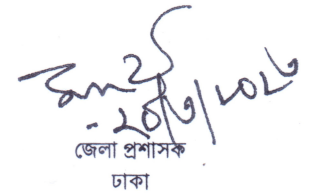 ২০/৩/২০২৩
জেলা প্রশাসক
ঢাকা